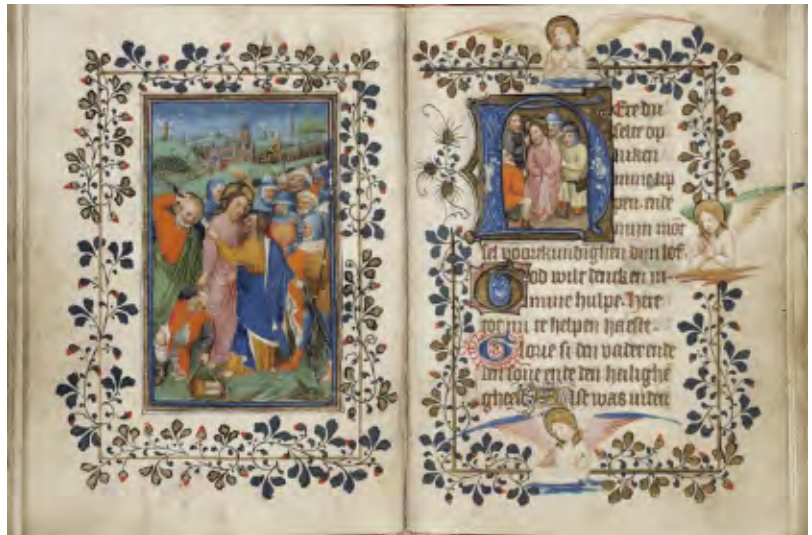 HEre du
selt op
luken
mine lip
pen. ende
mijn mōt
sel voorkundighen dijn lof
God wilt dencken in
mine hulpe. Here
tot mi te helpen haeste.
Glorie si den vader ende
den sone ende den heilighē
gheest. Alst was inden